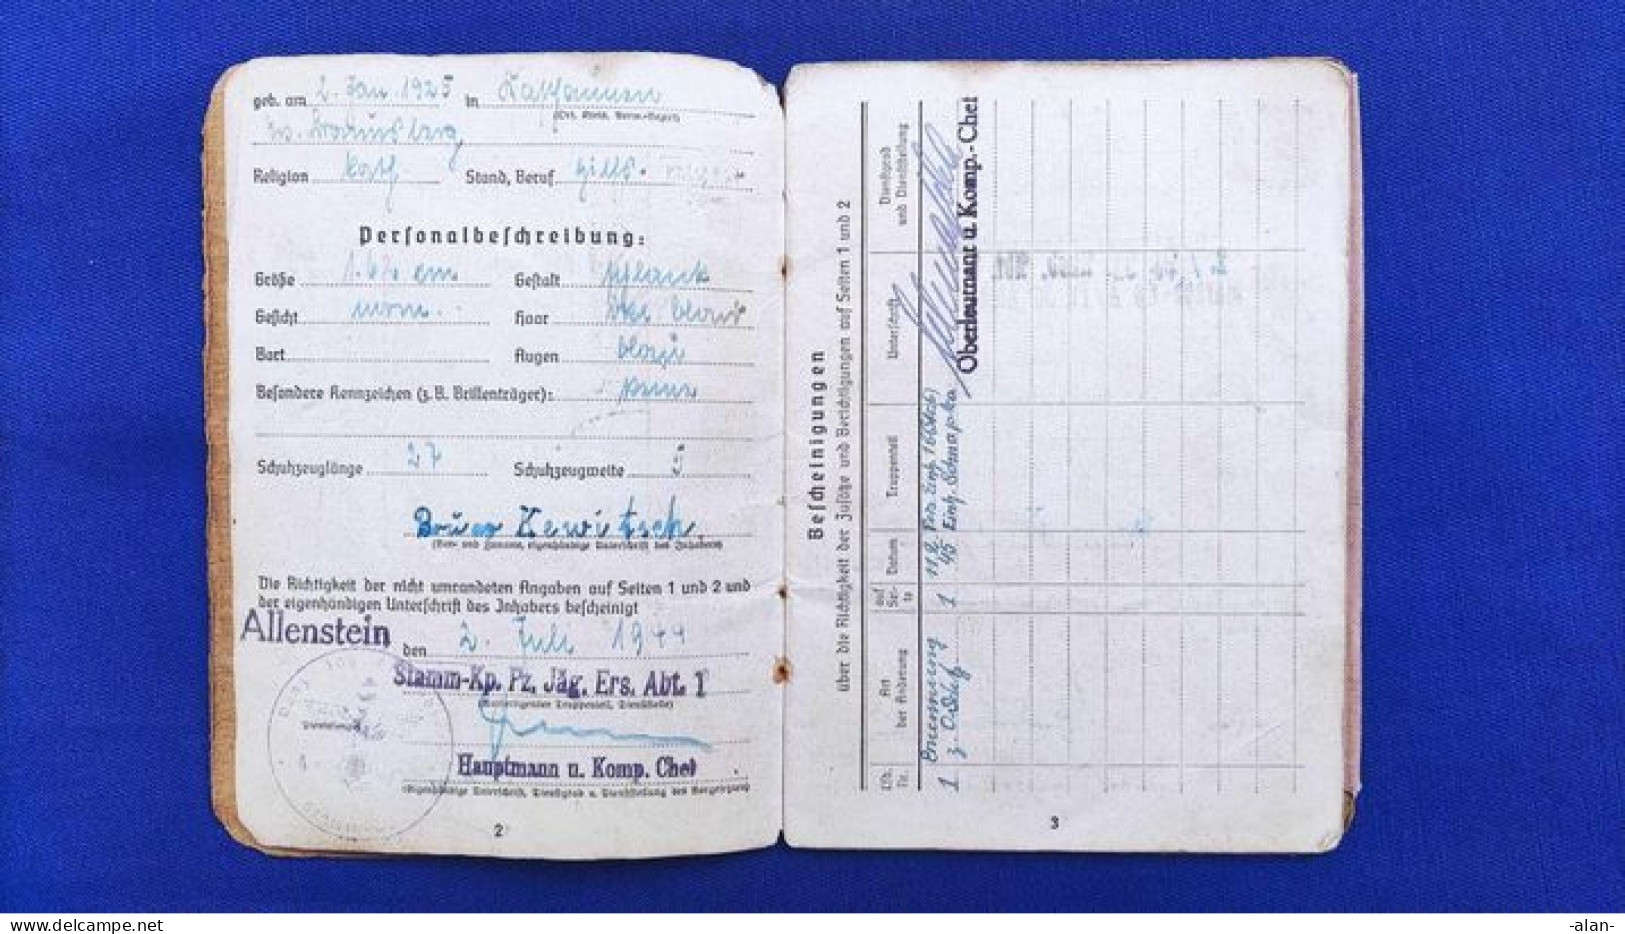 geb. am 2. Jan. 1925 in
(Ort, Kreis, Verw.-Bezirk)
Religion Kath Stand, Beruf Hilfs-
Personalbeschreibung:
Größe cm Gestalt schlank
Gesicht Haar blond
Bart Augen blau
Besondere Kennzeichen (z.B. Brillenträger): keine
Schuhzeuglänge 27 Schuhzeugweite 5
Bruno Kewitsch
(Vor- und Zuname, eigenhändige Unterschrift des Inhabers)
Die Richtigkeit der nicht umrandeten Angaben auf Seiten 1 und 2 und
der eigenhändigen Unterschrift des Inhabers bescheinigt
Allenstein den 2. Juli 1944
Stamm-Kp. Pz. Jäg. Ers. Abt. 1
(Ausfertigender Truppenteil, Dienststelle)
Hauptmann u. Komp. Chef
(Eigenhändige Unterschrift, Dienstgrad u. Dienststellung des Vorgesetzten)
2
Bescheinigungen
über die Richtigkeit der Zusätze und Berichtigungen auf Seiten 1 und 2
Lfd. Nr. Art der Änderung auf Seite Datum Truppenteil Unterschrift Dienstgrad und Dienststellung
1 Ernennung 1 11.2.
z. O.Schtz. 45 Einh. Schnapka
Oberleutnant u. Komp.-Chef
3
-alan-